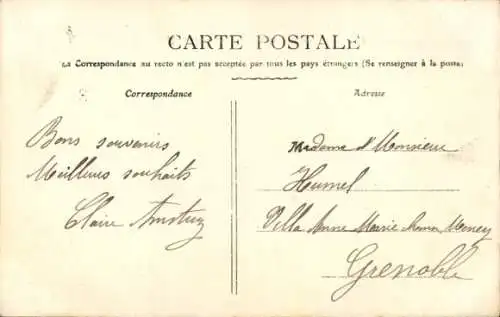 CARTE POSTALE
La Correspondance au recto n'est pas acceptée par tous les pays étrangers (Se renseigner à la poste)
Correspondance
Adresse
Bons souvenirs
Meilleurs souhaits
Claire
Madame et Monsieur
Humel
Villa Anne Marie
Grenoble